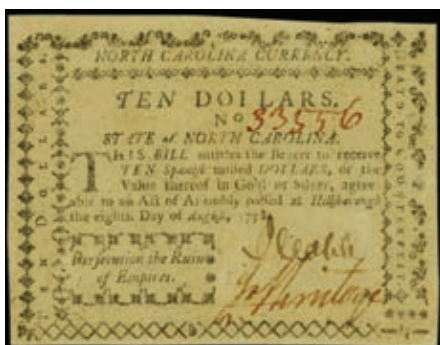 NORTH CAROLINA CURRENCY.
TEN DOLLARS.
No 33556
STATE of NORTH CAROLINA.
THIS BILL entitles the Bearer to receive
TEN Spanish milled DOLLARS, or the
Value thereof in Gold or Silver, agree-
able to an Act of Assembly passed at Hillsborough
the eighth Day of August, 1778.
Persecution the Ruin
of Empires.
TEN DOLLARS.
DEATH TO COUNTERFEIT.